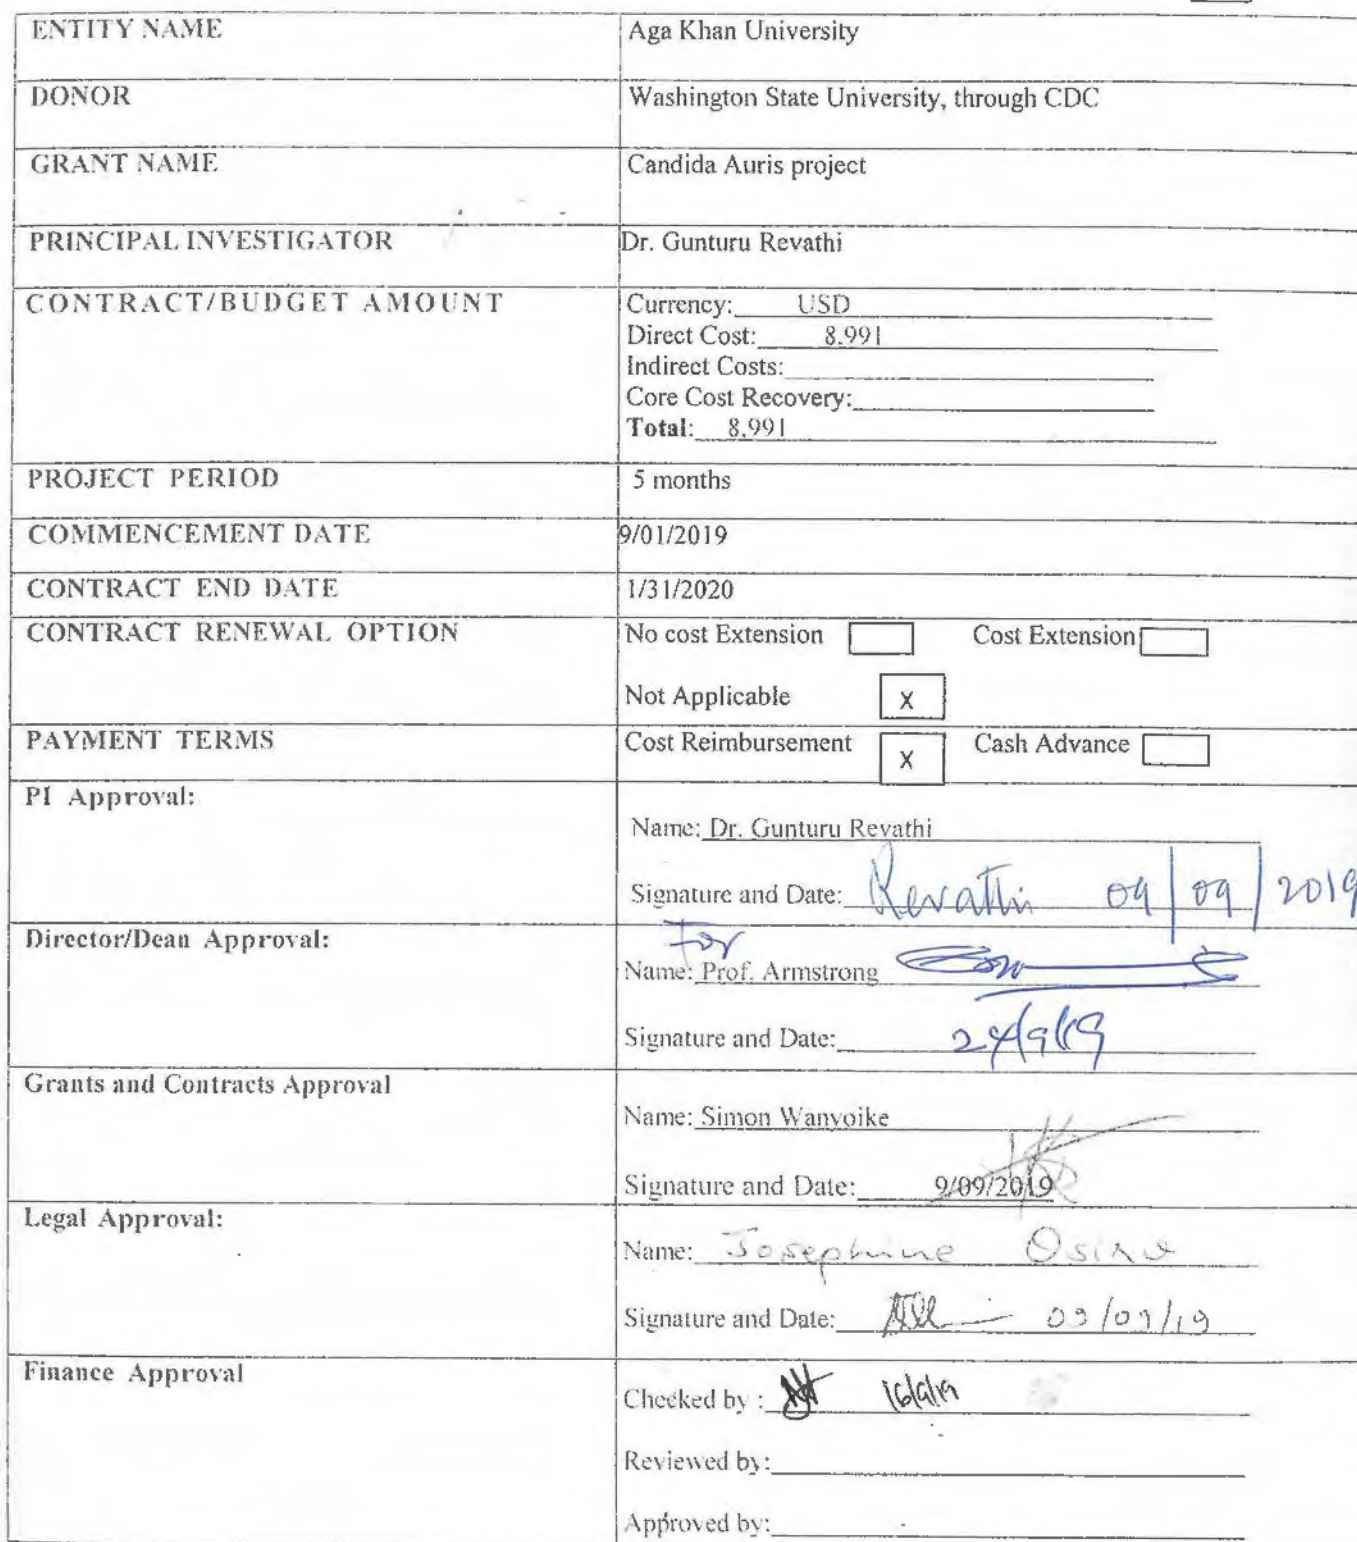 ENTITY NAME Aga Khan University
DONOR Washington State University, through CDC
GRANT NAME Candida Auris project
PRINCIPAL INVESTIGATOR Dr. Gunturu Revathi
CONTRACT/BUDGET AMOUNT Currency: USD
Direct Cost: 8,991
Indirect Costs:
Core Cost Recovery:
Total: 8,991
PROJECT PERIOD 5 months
COMMENCEMENT DATE 9/01/2019
CONTRACT END DATE 1/31/2020
CONTRACT RENEWAL OPTION No cost Extension Cost Extension
Not Applicable X
PAYMENT TERMS Cost Reimbursement X Cash Advance
PI Approval:
Name: Dr. Gunturu Revathi
Signature and Date: Revathi 09/09/2019
Director/Dean Approval: For
Name: Prof. Armstrong
Signature and Date: 24/9/19
Grants and Contracts Approval
Name: Simon Wanyoike
Signature and Date: 9/09/2019
Legal Approval:
Name: Josephine
Signature and Date: 09/09/19
Finance Approval
Checked by : 16/9/19
Reviewed by:
Approved by: